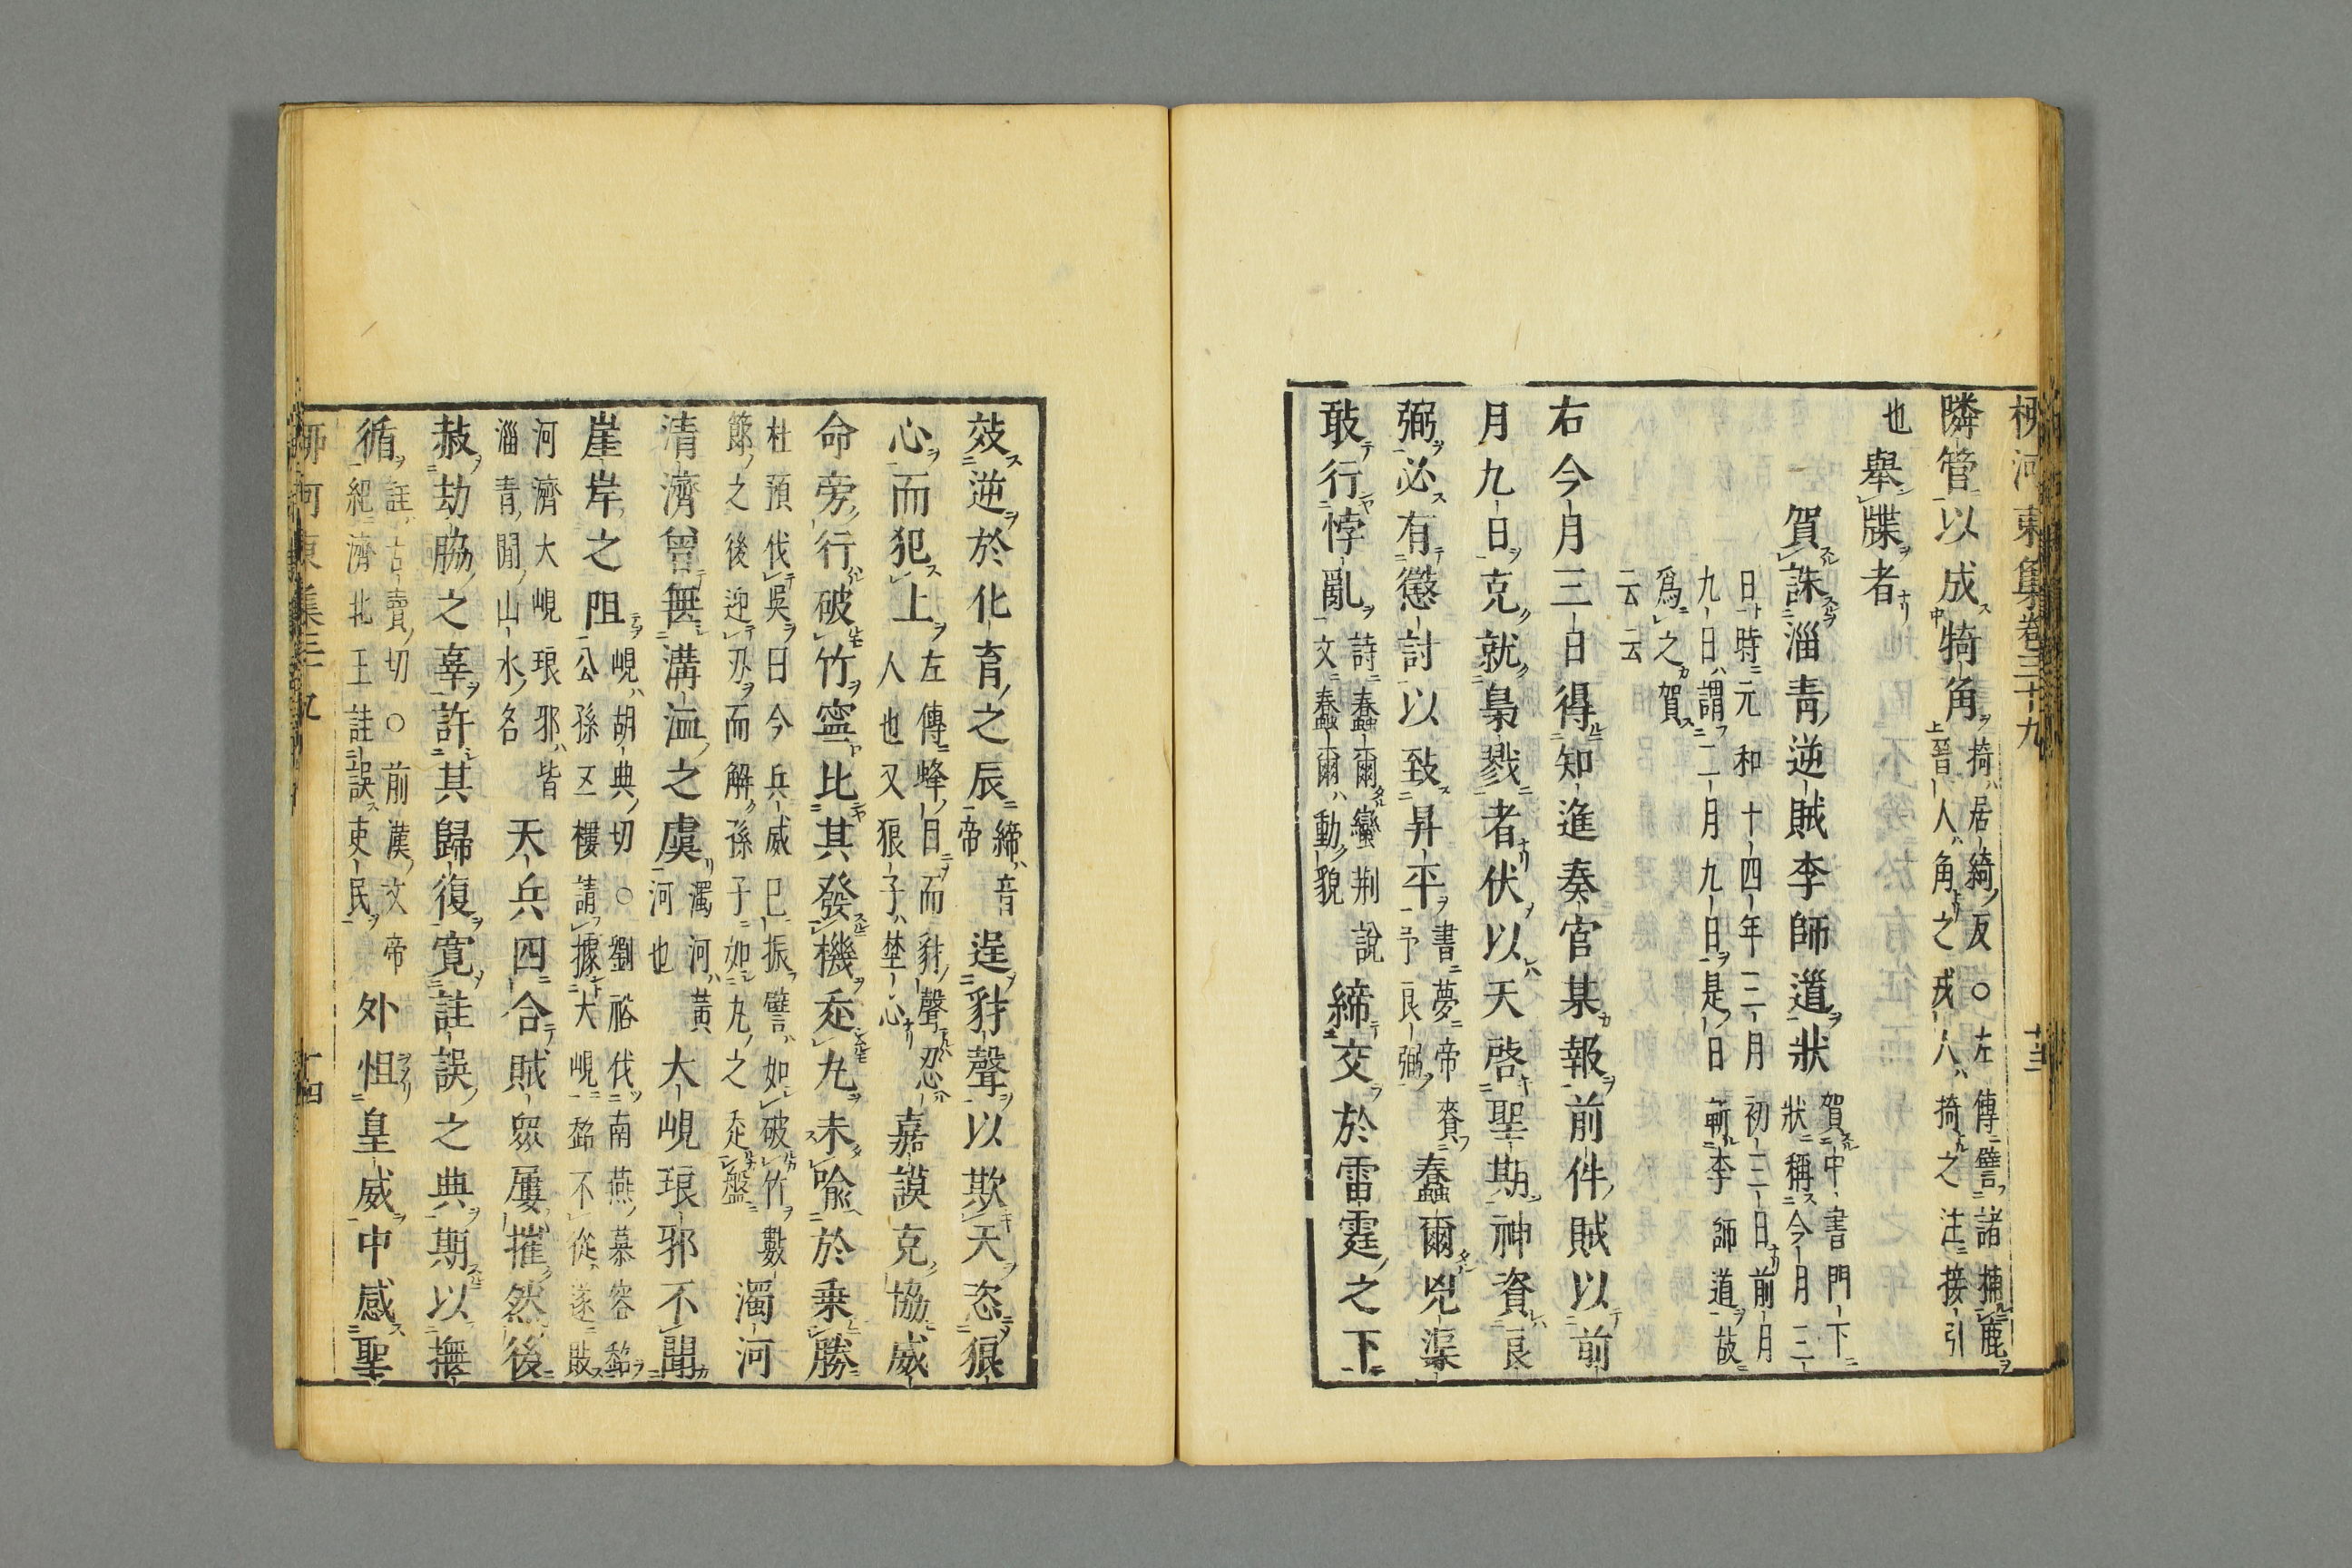 柳河東集卷三十九 十三
隣管以成犄角掎居綺反○左傳譬諸捕鹿
晉人角之戎人掎之注接引
也舉牒者
賀誅淄青逆賊李師道狀賀中書門下
狀稱今月三
日時元和十四年二月初三日前月
九日謂二月九日是日斬李師道故
爲之賀
云云
右今月三日得知進奏官某報前件賊以前
月九日克就梟戮者伏以天啓聖期神資良
弼必有懲討以致昇平書夢帝賚
予良弼蠢爾兇渠
敢行悖亂詩蠢爾蠻荆說
文蠢爾動貌締交於雷霆之下
效逆於化育之辰締音
帝逞豺聲以欺天恣狼
心而犯上左傳蜂目而豺聲忍
人也又狼子埜心嘉謨克協威
命旁行破竹寧比其發機走丸未喻於乗勝
杜預伐吳曰今兵威已振譬如破竹數
節之後迎刃而解孫子如丸之走盤濁河
清濟曾無溝洫之虞濁河黃
河也大峴琅邪不聞
崖岸之阻峴胡典切○劉裕伐南燕慕容超
公孫五樓請據大峴超不從遂敗
河濟大峴琅邪皆
淄青閒山水名天兵四合賊衆屢摧然後
赦劫脇之辜許其歸復寬詿誤之典期以撫
循詿古賣切○前漢文帝
紀濟北王詿誤吏民外怛皇威中感聖
柳河東集三十九 十四